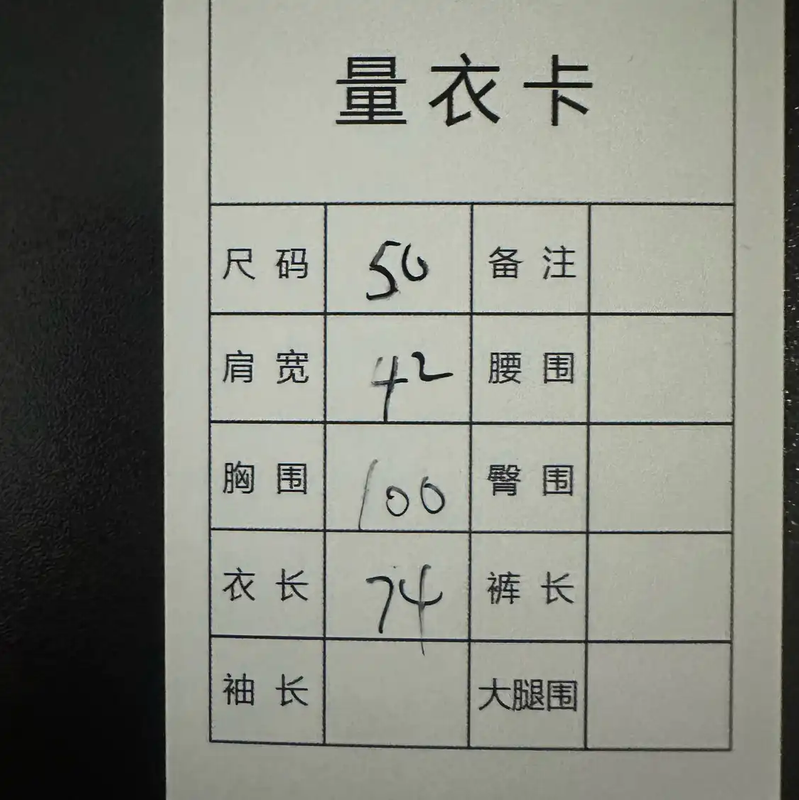 量衣卡
尺码 50 备注
肩宽 42 腰围
胸围 100 臀围
衣长 74 裤长
袖长 大腿围